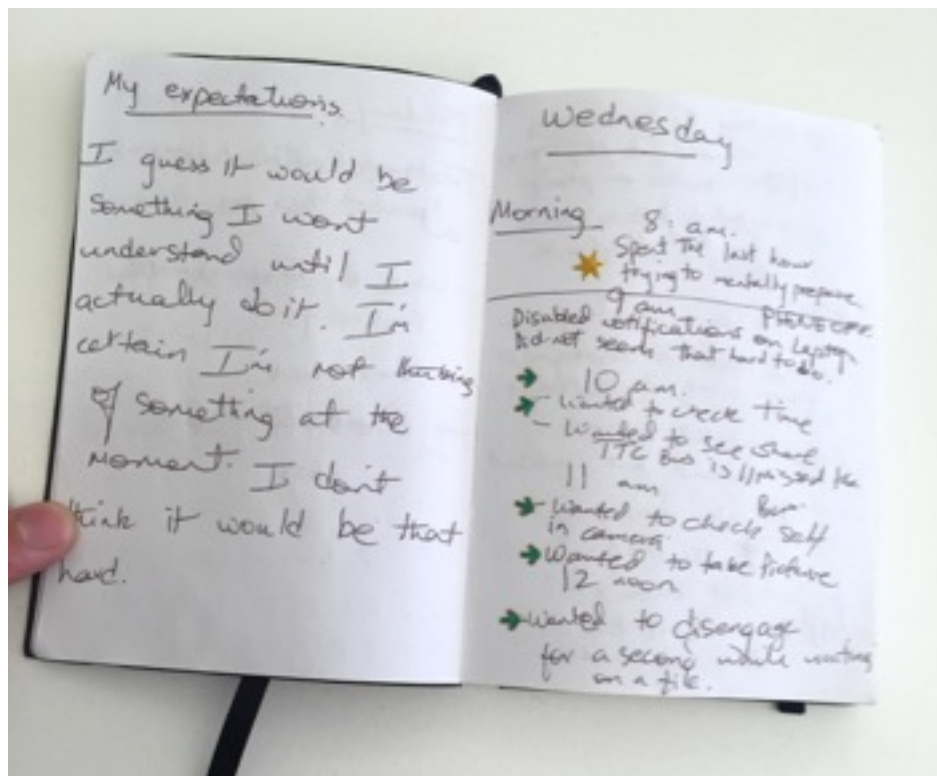 My expectations.
I guess it would be
something I wont
understand until I
actually do it. I'm
certain I'm not thinking
of something at the
moment. I don't
think it would be that
hard.
Wednesday
Morning 8: am.
Spent The last hour
trying to mentally prepare
9 am PHONE OFF.
Disabled notifications on Laptop
Did not seem that hard to do.
10 am.
Wanted to check Time
- Wanted to see where
TTC Bus is I missed the
Bus.
11 am
Wanted to check self
in camera
Wanted to take Picture
12 noon
Wanted to disengage
for a second while waiting
on a file.